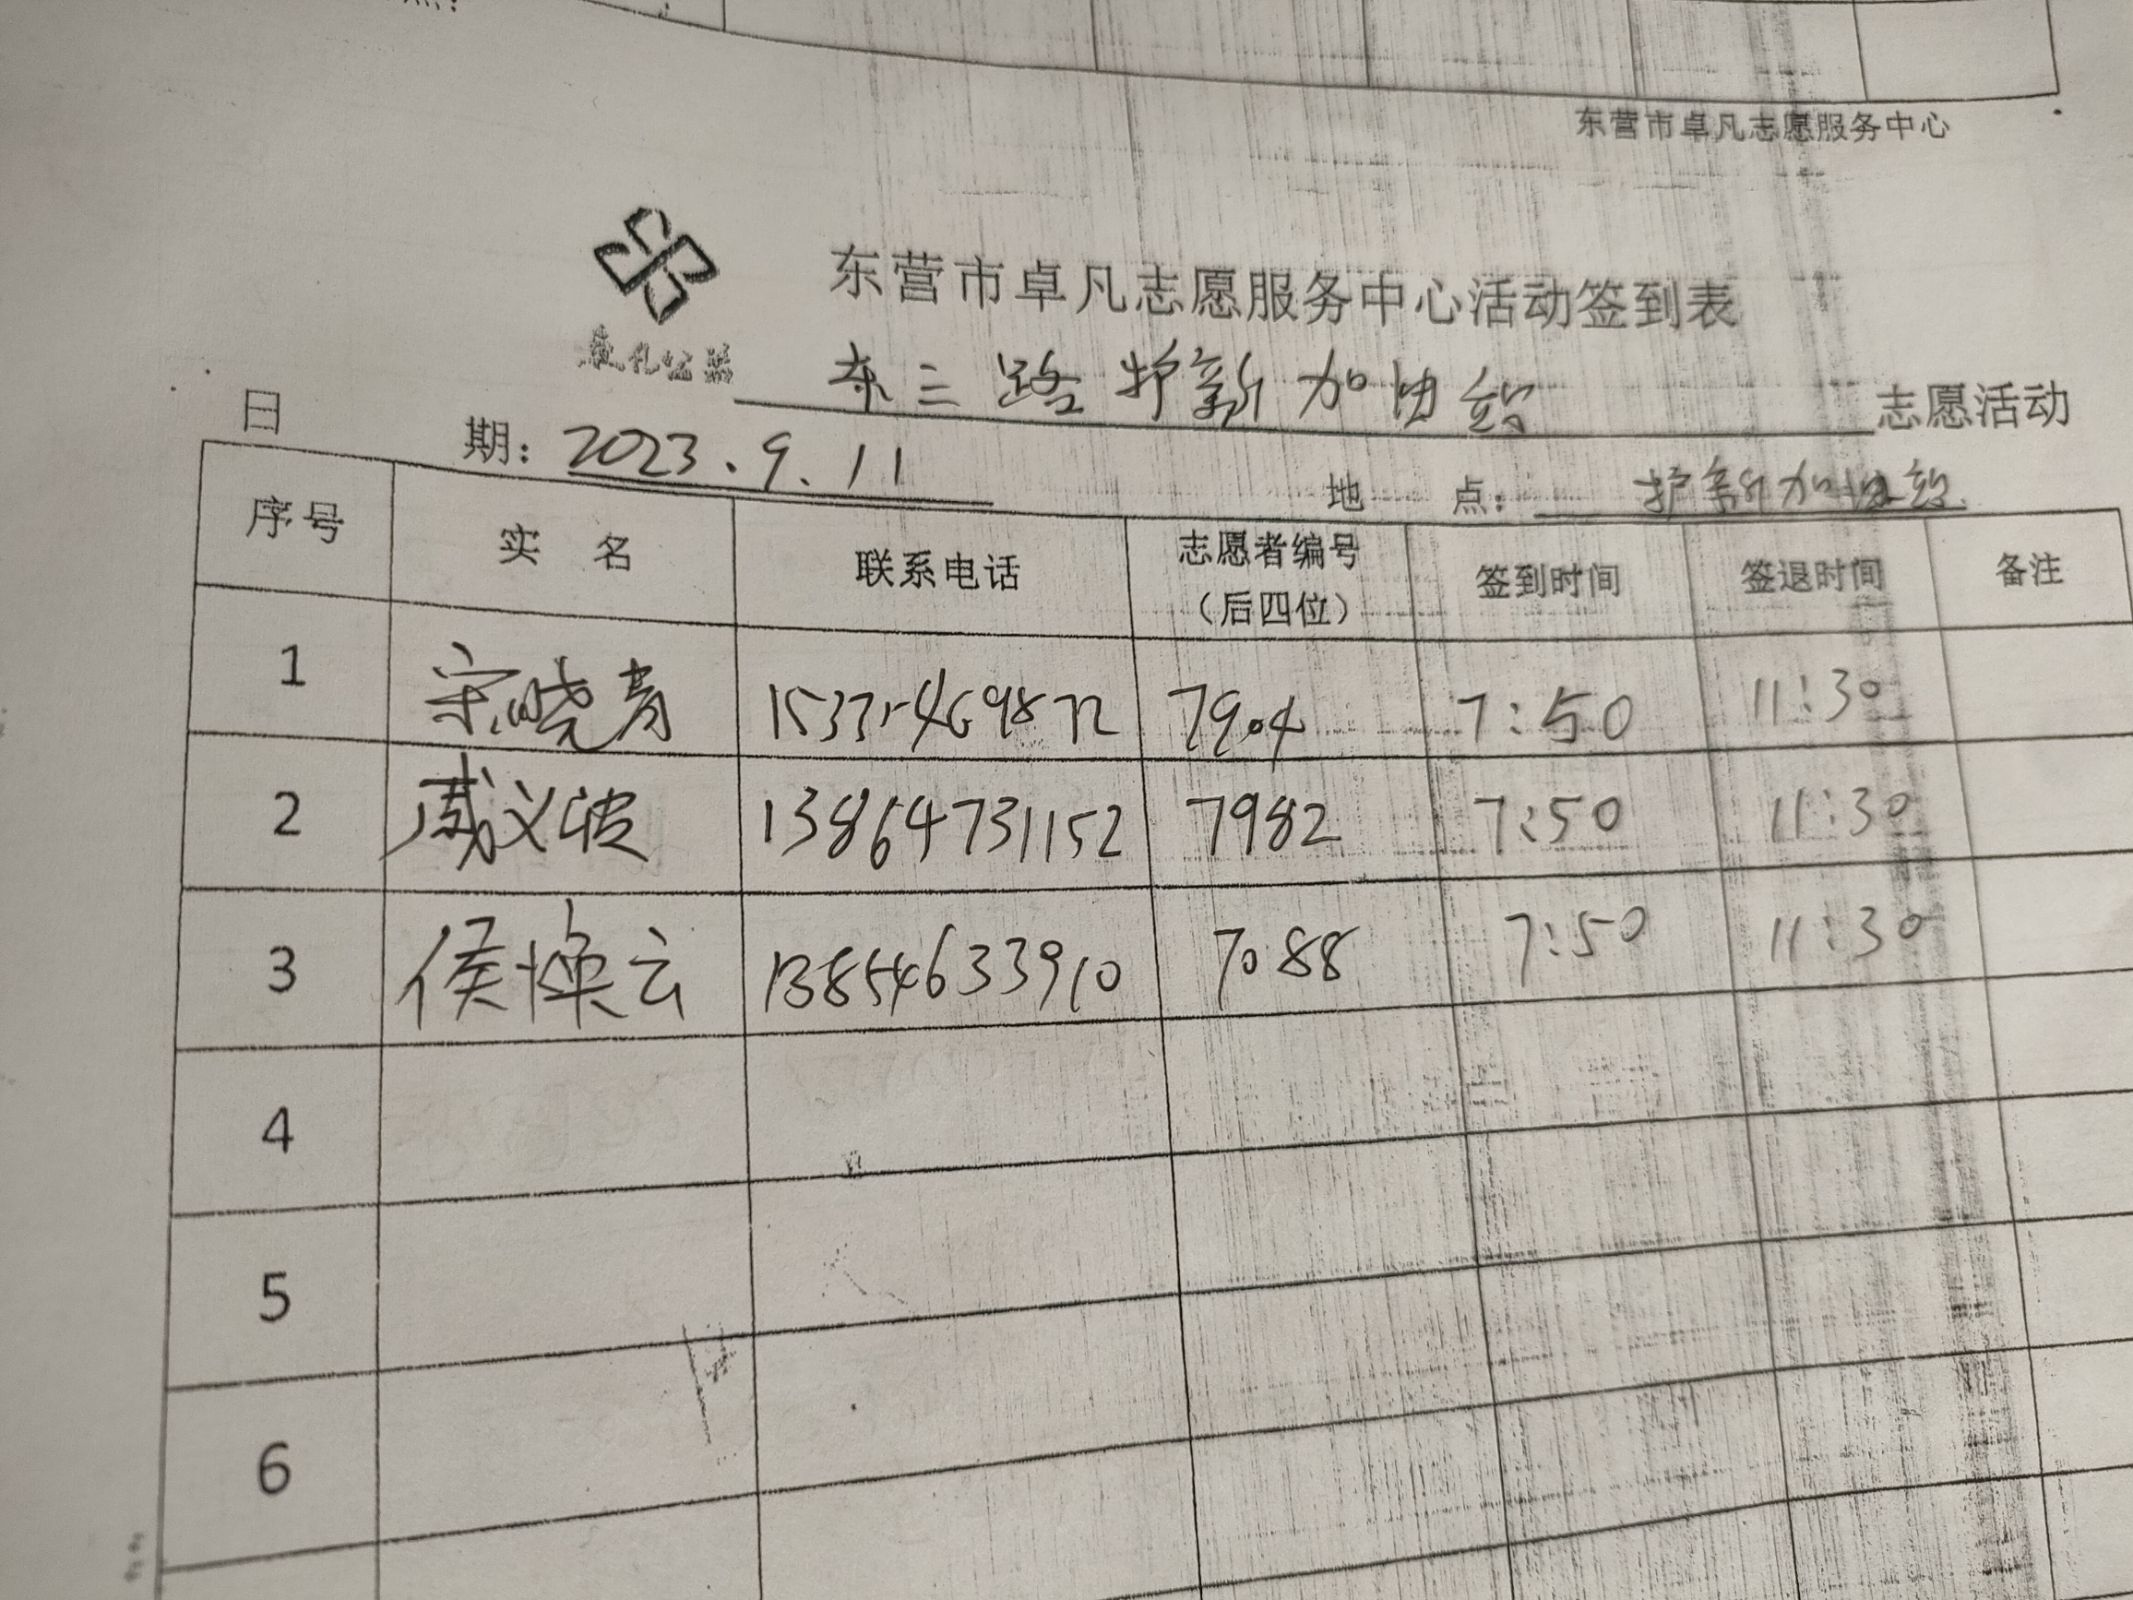 东营市卓凡志愿服务中心
东营市卓凡志愿服务中心活动签到表
东三路护新加油站 志愿活动
日 期：2023.9.11 地 点：护新加油站
序号 实名 联系电话 志愿者编号（后四位） 签到时间 签退时间 备注
1 宋晓青 7904 7:50 11:30
2 戚义波 13864731152 7982 7:50 11:30
3 侯焕云 13854633910 7088 7:50 11:30
4
5
6